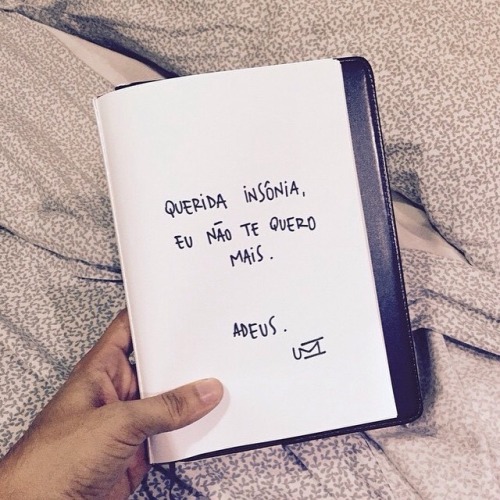 QUERIDA INSÔNIA,
EU NÃO TE QUERO
MAIS.
ADEUS.